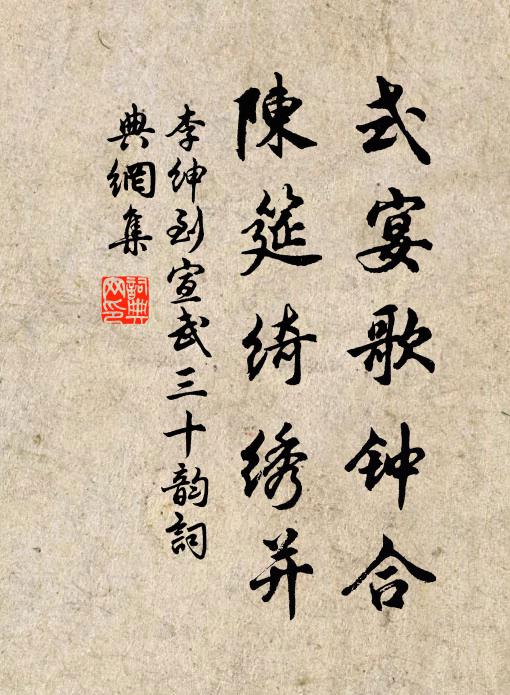 式宴歌钟合
陳筵绮绣并
李绅到宣武三十韵詞
典網集
詞典
网印